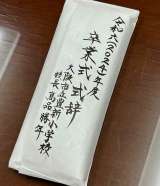 令和六(二〇二四)年度
卒業式 式辞
大阪市立豊新小学校
校長 髙品 勝年